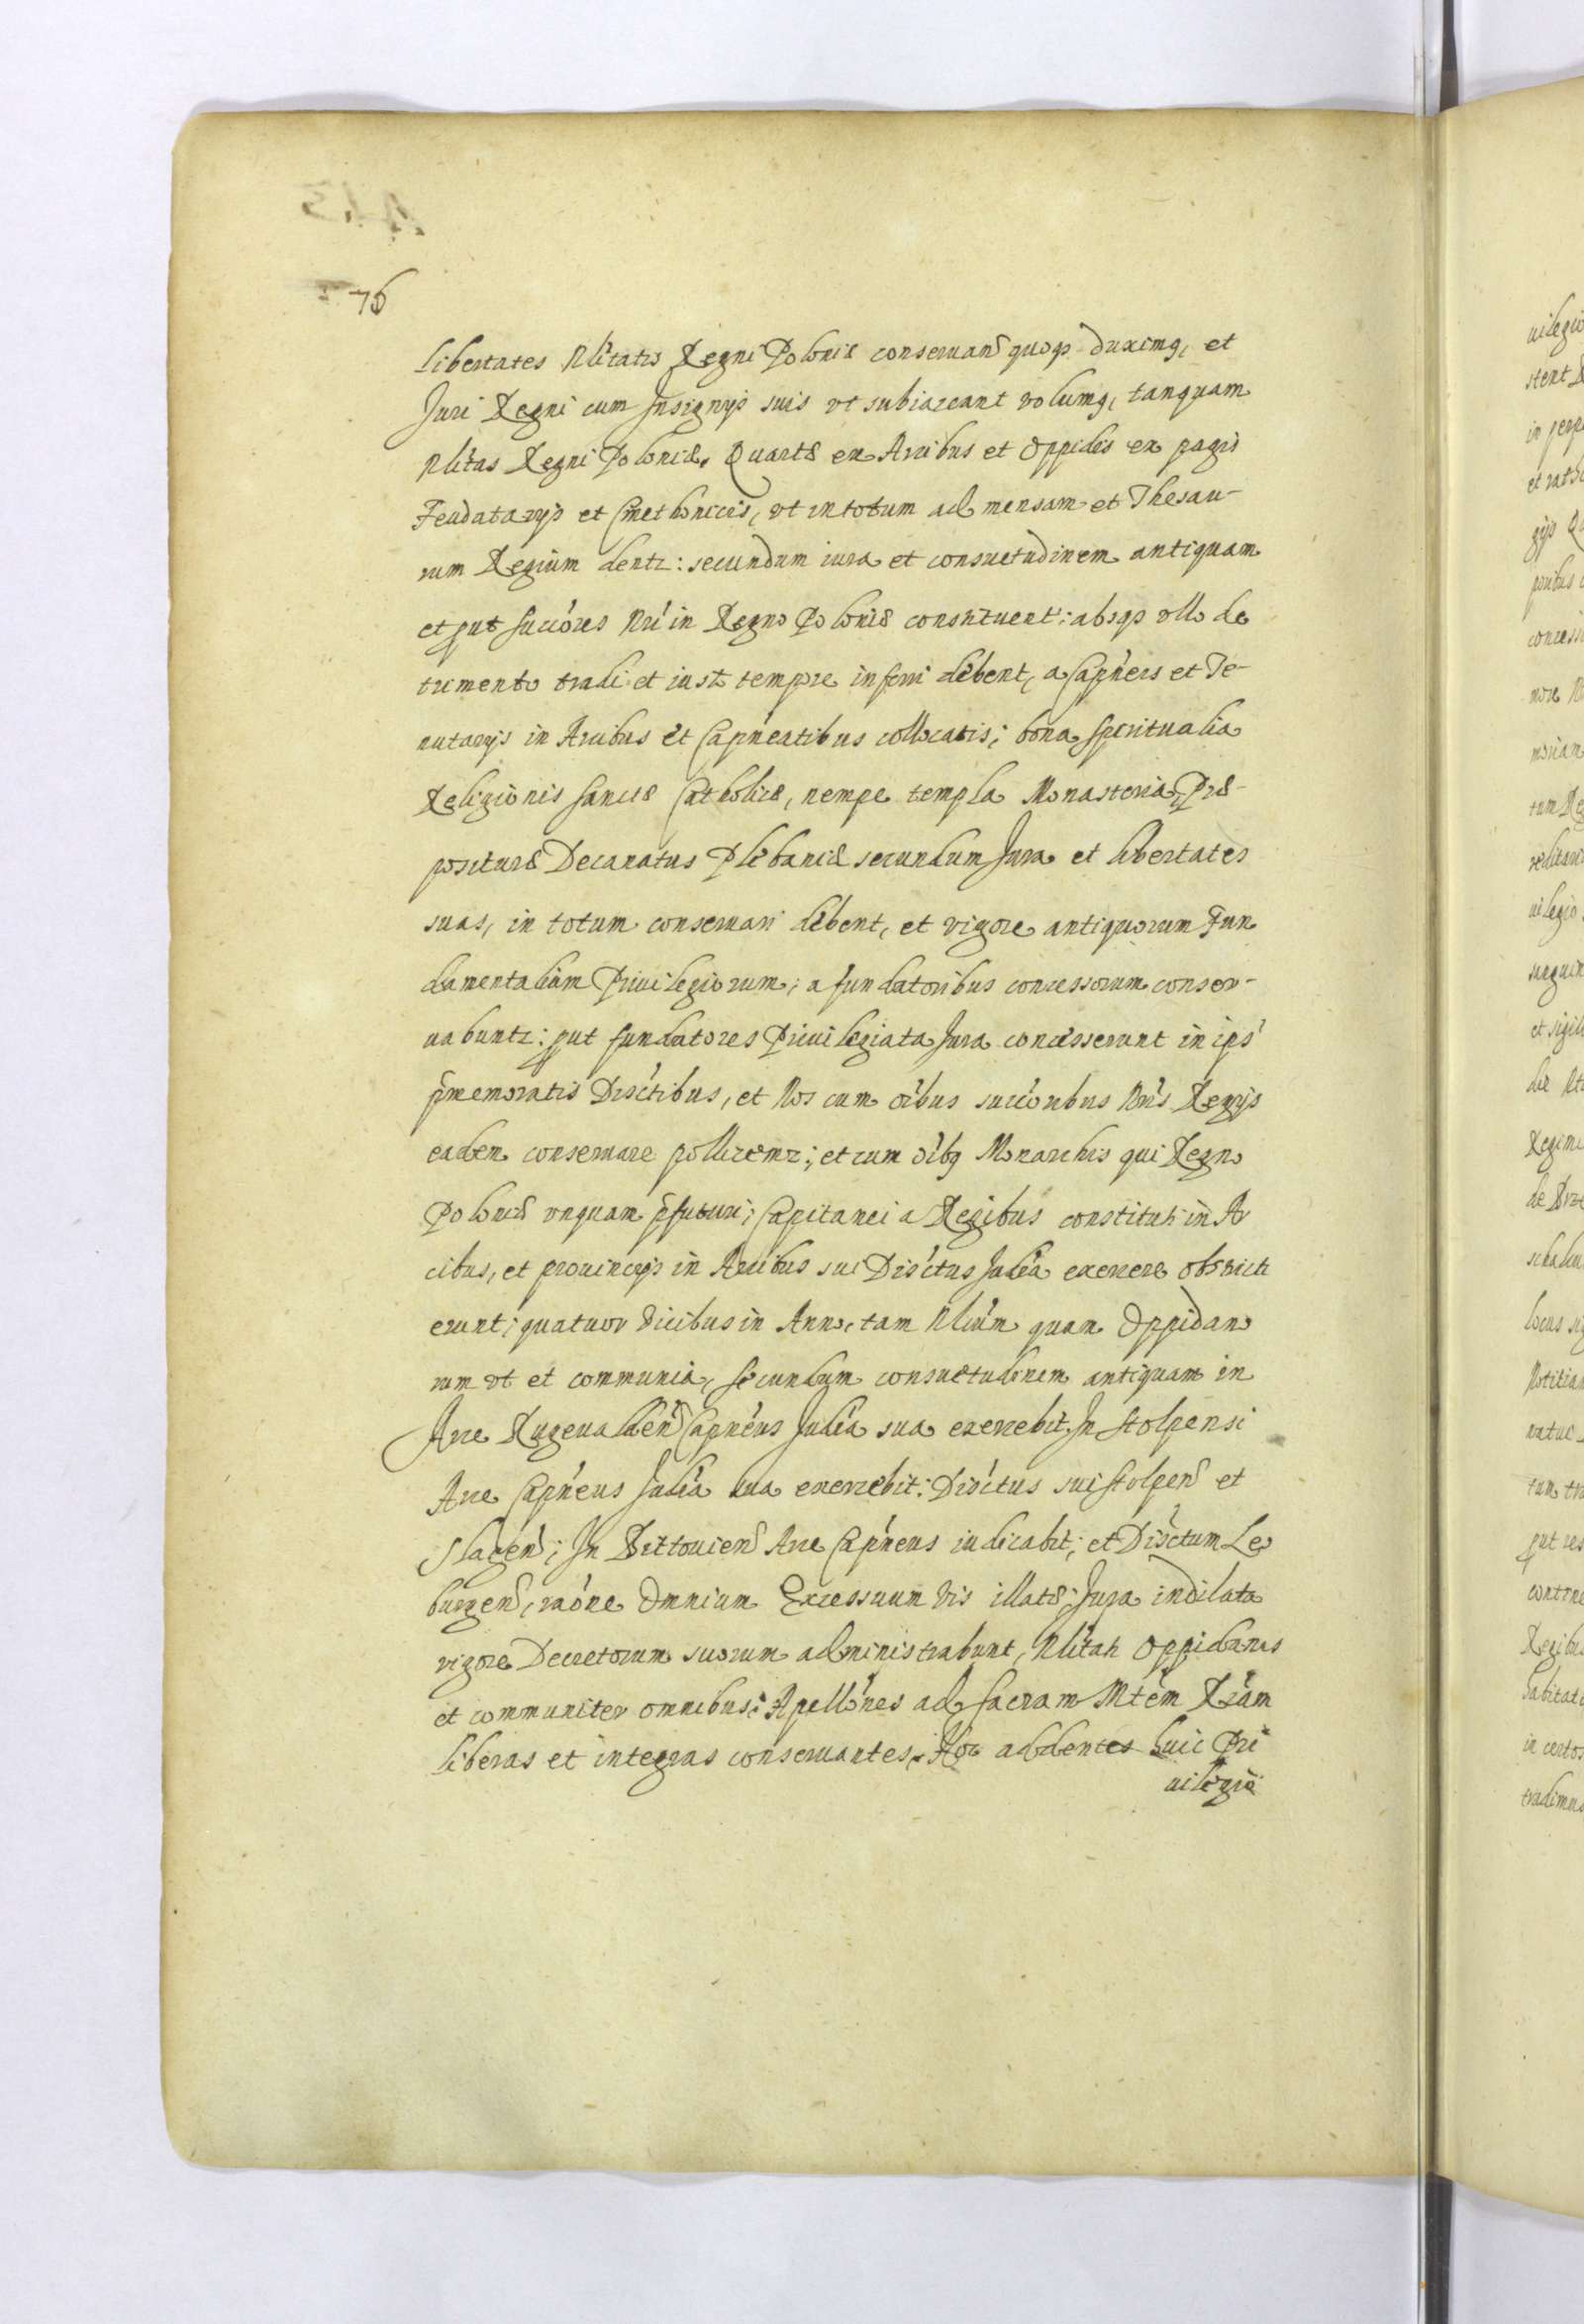 76
libertates Nlitatis Regni Poloniæ conseruand quoqꝫ duximꝰ, et
Juri Regni cum Insignijs suis vt subiaceant volumꝰ, tanquam
Nlitas Regni Poloniæ. Quartæ ex Arcibus et Oppidis ex pagis
Feudatarijs et Cmethonicis, vt in totum ad mensam et Thesau-
rum Regium dentr: secundum iura et consuetudinem antiquam
et put succ'ores Nri in Regno Poloniæ constituent: absqꝫ vllo de
trimento tradi et iusto tempore inferri debent, a Capn'eis et Te-
nutarijs in Arcibus et Capn'eatibus collocatis; bona spiritualia
Religionis sanctæ Catholicæ, nempe templa Monasteria, Præ-
posituræ Decanatus Plebaniæ secundum Jura et libertates
suas, in totum conseruari debent, et vigore antiquorum Fun
damentalium Priuilegiorum; a fundatoribus concessorum conser-
uabuntr: put fundatores Priuilegiata Jura concesserunt in ips'
pmemoratis Disc'tibus, et Nos cum oi'bus succ'oribus Nri's Regijs
eadem conseruare pollicemr; et cum oi'bꝰ Monarchis qui Regno
Poloniæ vnquam pfuturi; Capitanei a Regibus constituti in Ar
cibus, et prouincijs in Arcibus sui Disc'tus Judi'a exercere obstricti
erunt; quatuor vicibus in Anno, tam Nliu'm quam Oppidano
rum vt et communia, secundum consuetudinem antiquam in
Arce Rugeualden' Capn'eus Judi'a sua exercebit. In Stolpensi
Arce Capn'eus Judi'a sua exercebit: Disc'tus sui Stolpens et
Slacen'; In Bittouiens Arce Capn'eus iudicabit; et Disc'tum Le
burgens, rao'ne Omnium Excessuum vis illatæ; Jura indilata
vigore Decretorum suorum administrabunt, Nlitati Oppidanis
et communiter omnibus: Apello'nes ad sacram Mte'm Ria'm
liberas et integras conseruantes. Hoc addentes huic Pri
uilegio